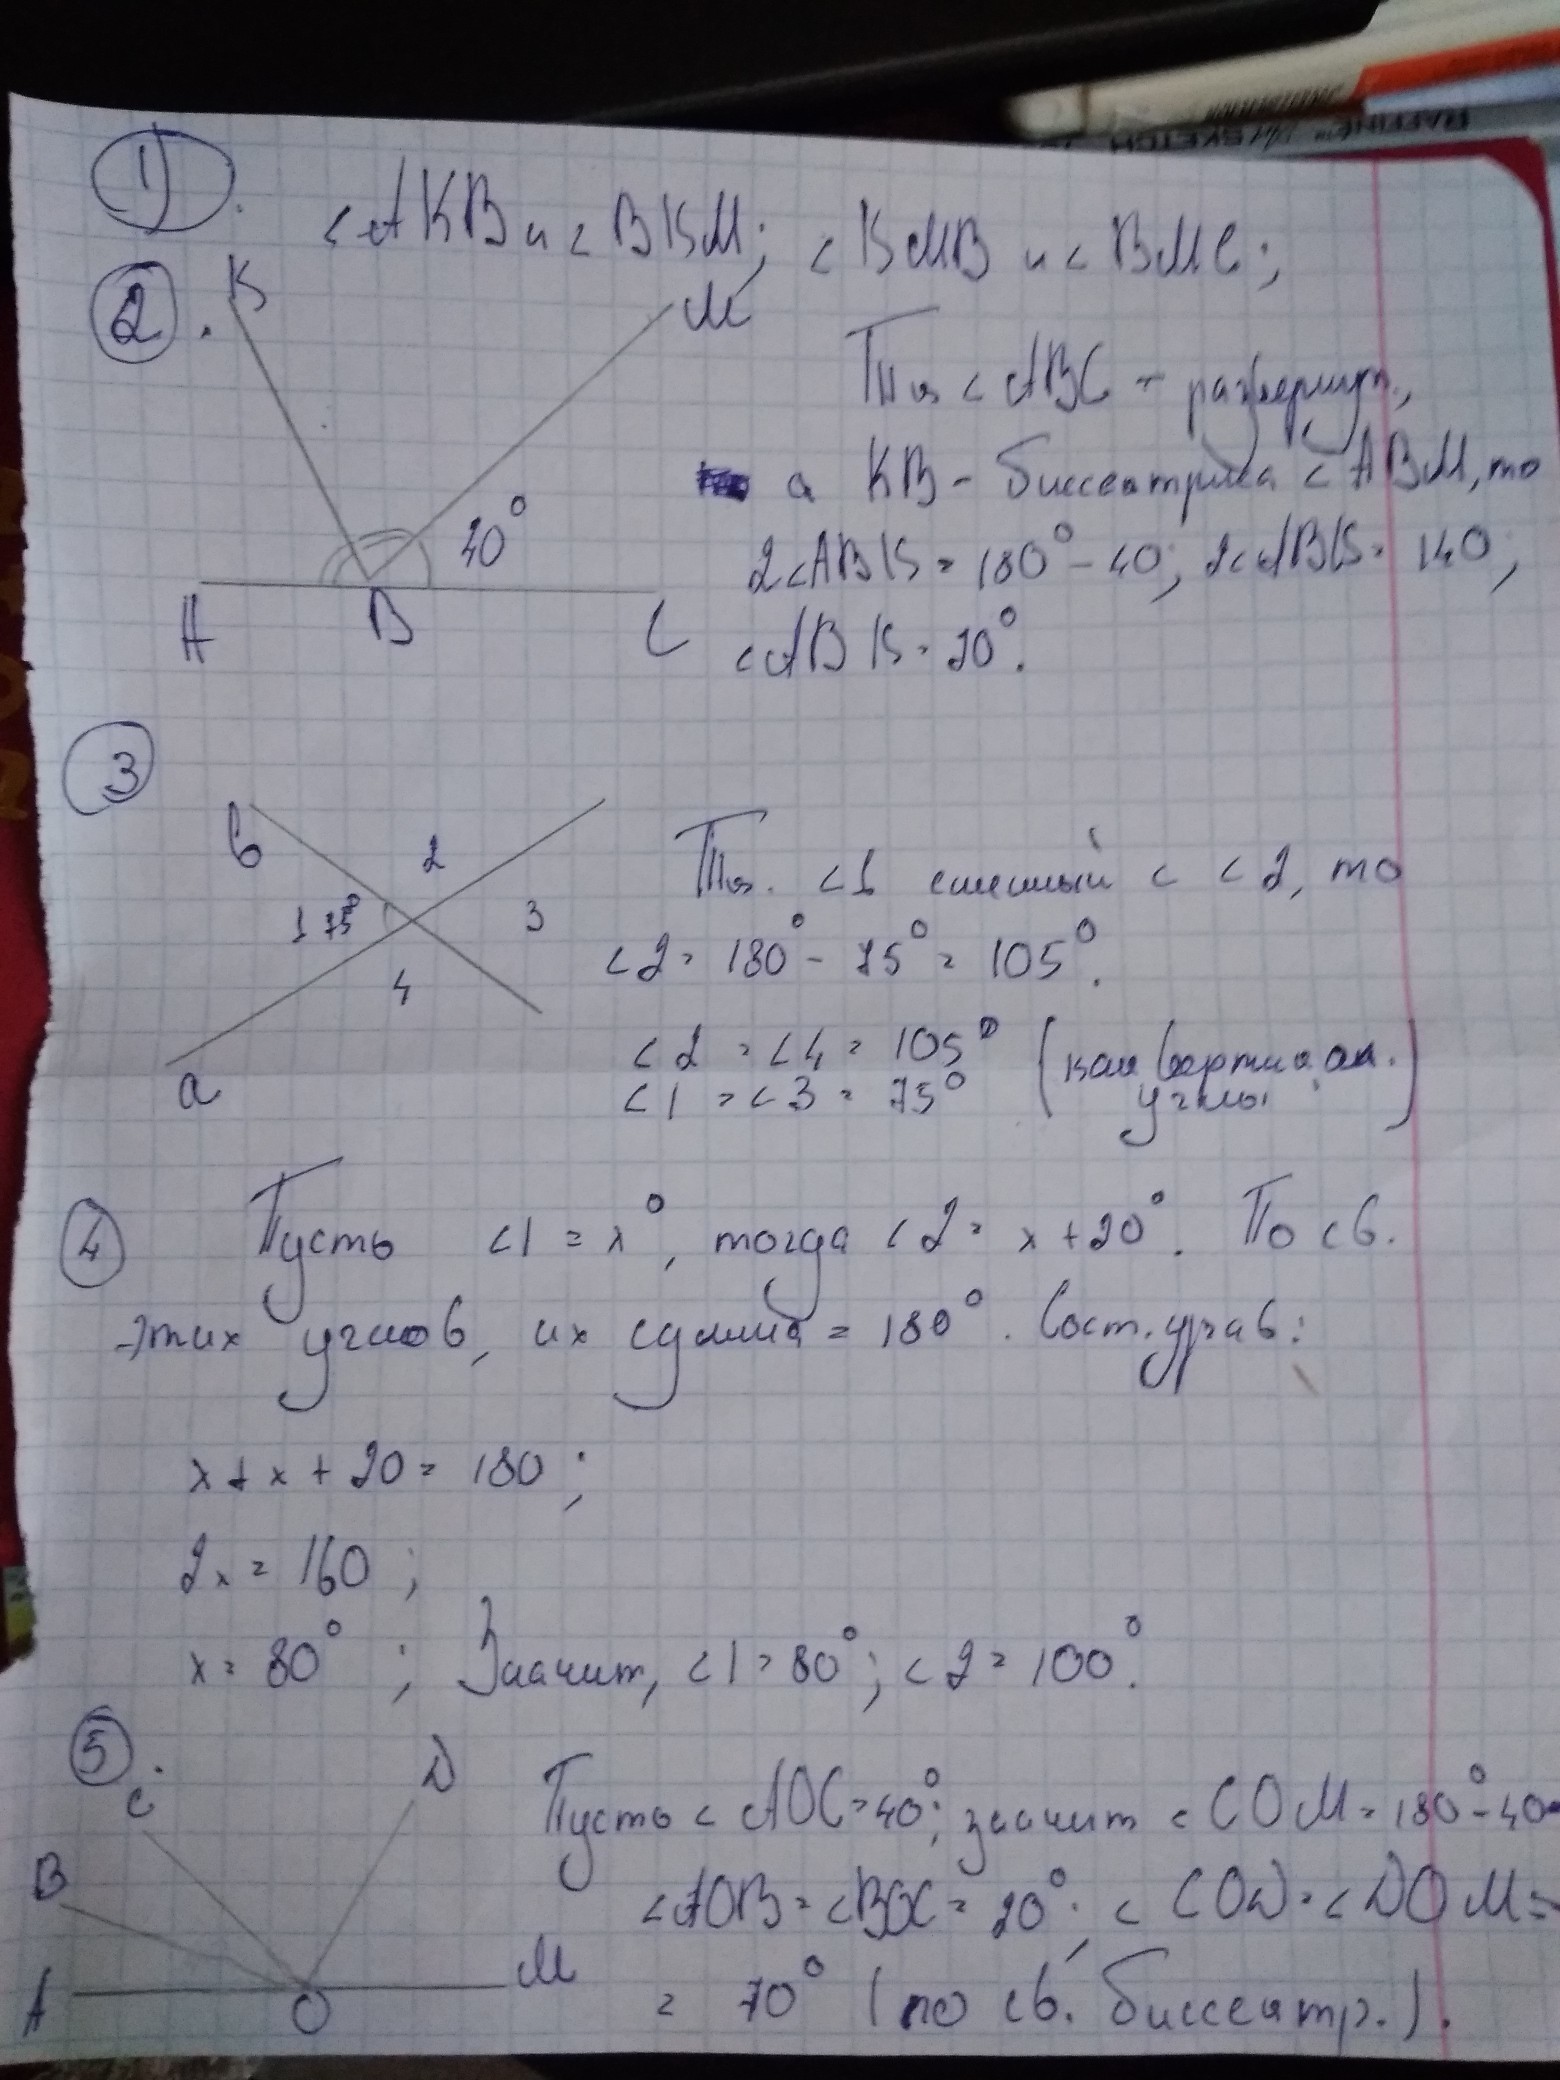 1)
<AKB и <BKM; <KMB и <BMC;
2.
K
M
40°
A
B
C
Т.к <ABC - развернут.,
а KB - биссектриса <ABM, то
2<ABK = 180° - 40; 2<ABK = 140;
<ABK = 70°.
3
b
2
1 75°
3
4
a
Т.к. <1 смежный с <2, то
<2 = 180° - 75° = 105°.
<2 = <4 = 105°
<1 = <3 = 75°
(как вертикал. углы)
4
Пусть <1 = x°, тогда <2 = x + 20°. По св.
этих углов, их сумма = 180°. Сост. урав:
x + x + 20 = 180;
2x = 160;
x = 80°; Значит, <1 = 80°; <2 = 100°.
5
C
D
B
A
O
M
Пусть <AOC = 40°; значит <COM = 180° - 40
<AOB = <BOC = 20°; <COD = <DOM =
= 70° (по св. биссектр.).